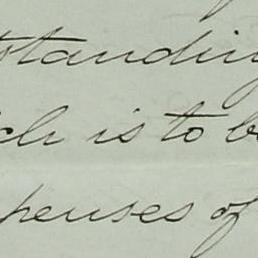 standing
ch is to be
penses of